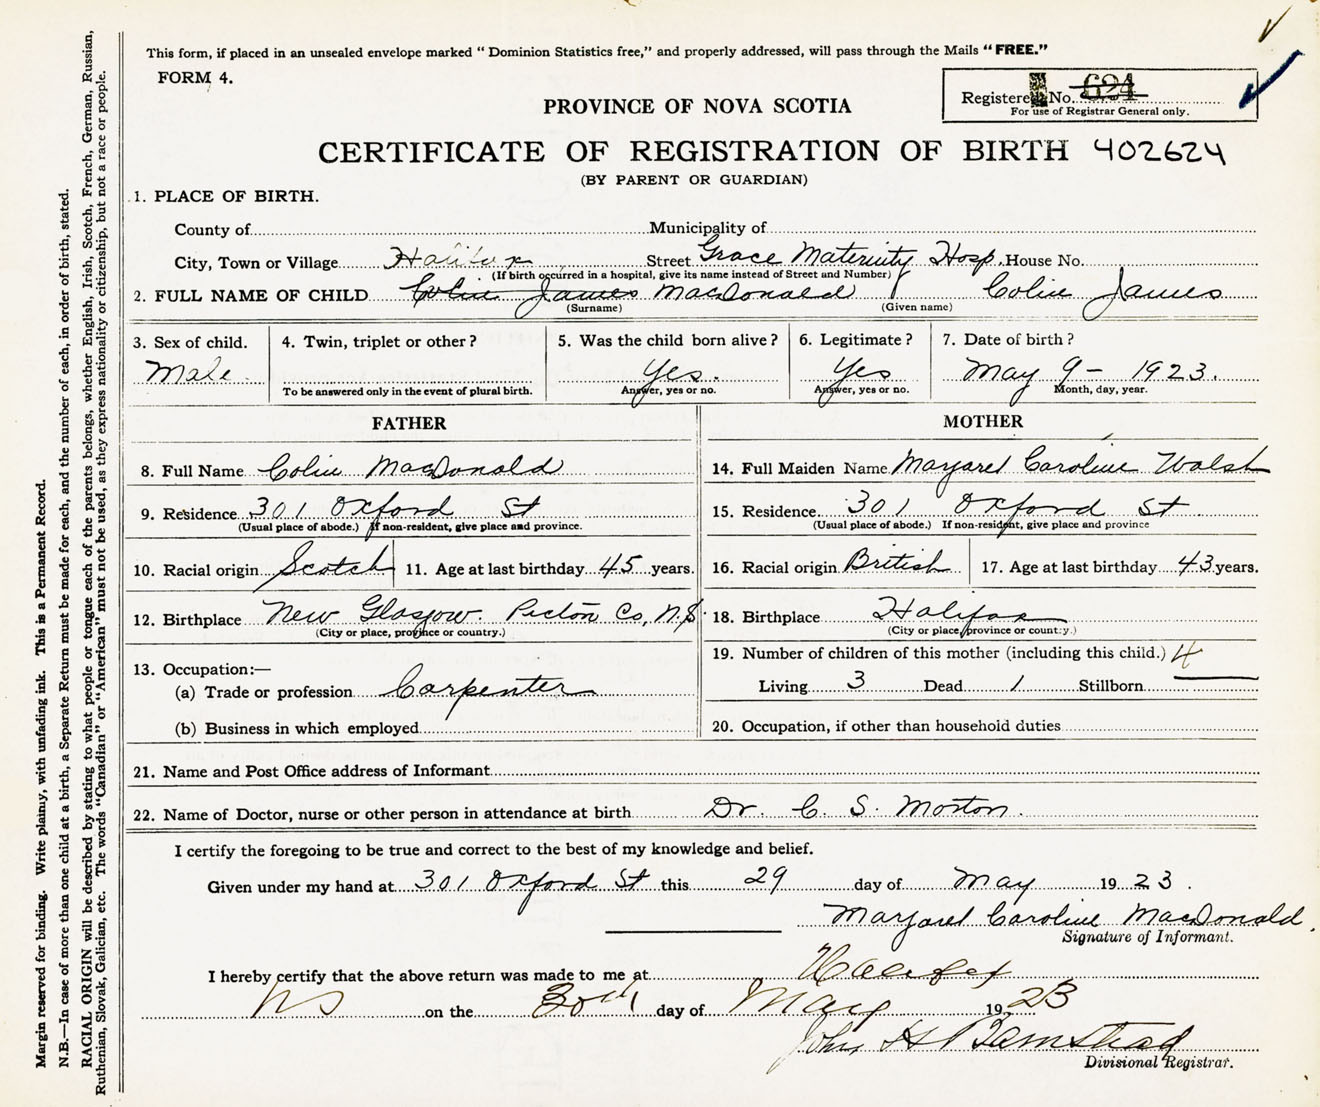 This form, if placed in an unsealed envelope marked "Dominion Statistics free," and properly addressed, will pass through the Mails "FREE."
FORM 4.
Registered No. 624
For use of Registrar General only.
PROVINCE OF NOVA SCOTIA
CERTIFICATE OF REGISTRATION OF BIRTH 402624
(BY PARENT OR GUARDIAN)
1. PLACE OF BIRTH.
County of Municipality of
City, Town or Village Halifax Street Grace Maternity Hosp. House No.
(If birth occurred in a hospital, give its name instead of Street and Number)
2. FULL NAME OF CHILD Colin James MacDonald Colin James
(Surname) (Given name)
3. Sex of child. 4. Twin, triplet or other? 5. Was the child born alive? 6. Legitimate? 7. Date of birth?
Male. Yes. Yes May 9 - 1923.
To be answered only in the event of plural birth. Answer, yes or no. Answer, yes or no. Month, day, year.
FATHER MOTHER
8. Full Name Colin MacDonald 14. Full Maiden Name Margaret Caroline Walsh
9. Residence 301 Oxford St 15. Residence. 301 Oxford St
(Usual place of abode.) If non-resident, give place and province. (Usual place of abode.) If non-resident, give place and province
10. Racial origin Scotch 11. Age at last birthday 45 years. 16. Racial origin British 17. Age at last birthday 43 years.
12. Birthplace New Glasgow. Pictou Co, N.S. 18. Birthplace Halifax
(City or place, province or country.) (City or place, province or country.)
19. Number of children of this mother (including this child.) 4
13. Occupation:—
(a) Trade or profession Carpenter Living 3 Dead 1 Stillborn
(b) Business in which employed 20. Occupation, if other than household duties
21. Name and Post Office address of Informant
22. Name of Doctor, nurse or other person in attendance at birth Dr. C. S. Morton.
I certify the foregoing to be true and correct to the best of my knowledge and belief.
Given under my hand at 301 Oxford St this 29 day of May 1923.
Margaret Caroline MacDonald.
Signature of Informant.
I hereby certify that the above return was made to me at Halifax
NS on the 30th day of May 1923
John H Barnstead
Divisional Registrar.
Margin reserved for binding. Write plainly, with unfading ink. This is a Permanent Record.
N.B.—In case of more than one child at a birth, a Separate Return must be made for each, and the number of each, in order of birth, stated.
RACIAL ORIGIN will be described by stating to what people or tongue each of the parents belongs, whether English, Irish, Scotch, French, German, Russian,
Ruthenian, Slovak, Galician, etc. The words "Canadian" or "American" must not be used, as they express nationality or citizenship, but not a race or people.